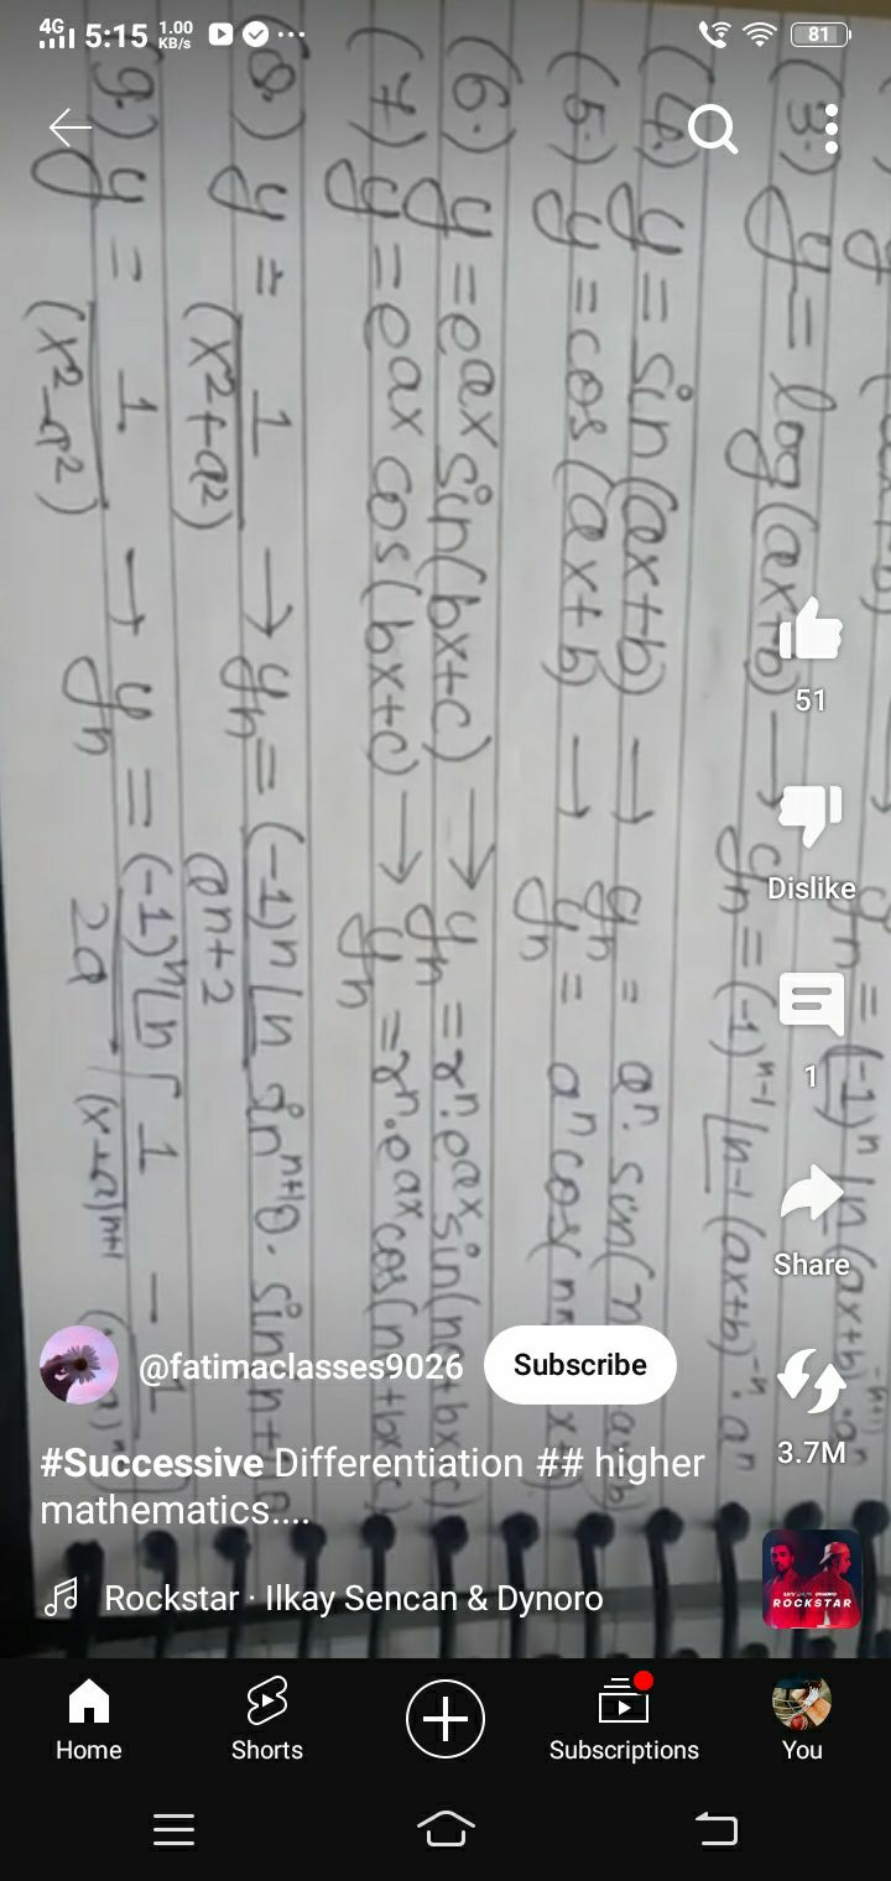 4G 5:15 1.00 KB/s 81
(3.) y = log(ax+b) → yn = (-1)^n-1 |n-1 (ax+b)^-n . a^n
(4.) y = sin(ax+b) → yn = a^n. sin(
(5.) y = cos(ax+b) → yn = a^n cos(
(6.) y = e^ax sin(bx+c) → yn = r^n. e^ax sin(
(7) y = e^ax cos(bx+c) → yn = r^n. e^ax cos(
(8.) y = 1/(x²+a²) → yn = (-1)^n |n / a^n+2 sin^n+1 θ. sin
(9.) y = 1/(x²-a²) → yn = (-1)^n |n / 2a [ 1
51
Dislike
1
Share
3.7M
@fatimaclasses9026 Subscribe
#Successive Differentiation ## higher
mathematics....
Rockstar · Ilkay Sencan & Dynoro
ROCKSTAR
Home Shorts Subscriptions You